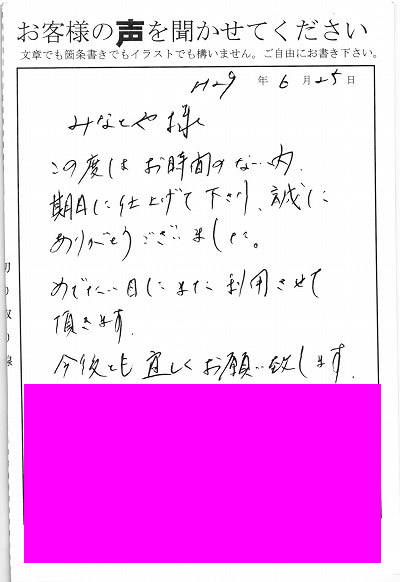 お客様の声を聞かせてください
文章でも箇条書きでもイラストでも構いません。ご自由にお書き下さい。
H29年6月25日
みなとや様
この度はお時間のない内、
期日に仕上げて下さり、誠に
ありがとうございました。
めでたい日にまた利用させて
頂きます。
今後とも宜しくお願い致します。
切り取り線